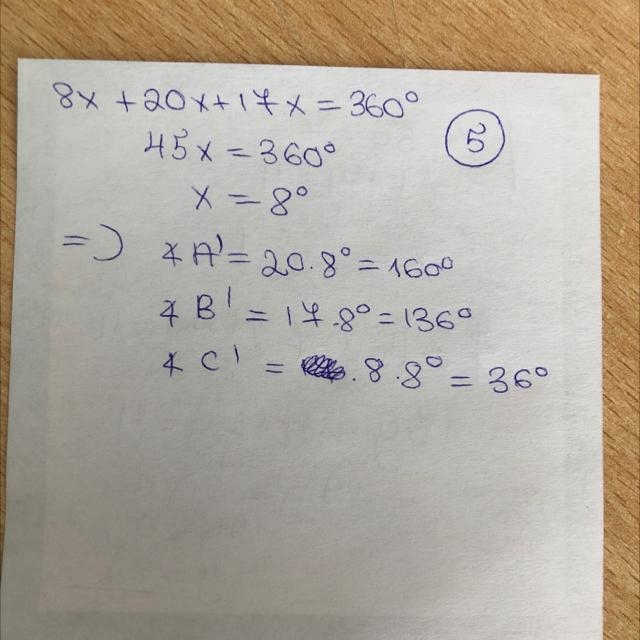 8x + 20x + 17x = 360°
5
45x = 360°
x = 8°
=> ∢ A' = 20.8° = 160°
∢ B' = 17.8° = 136°
∢ C' = .8.8° = 36°